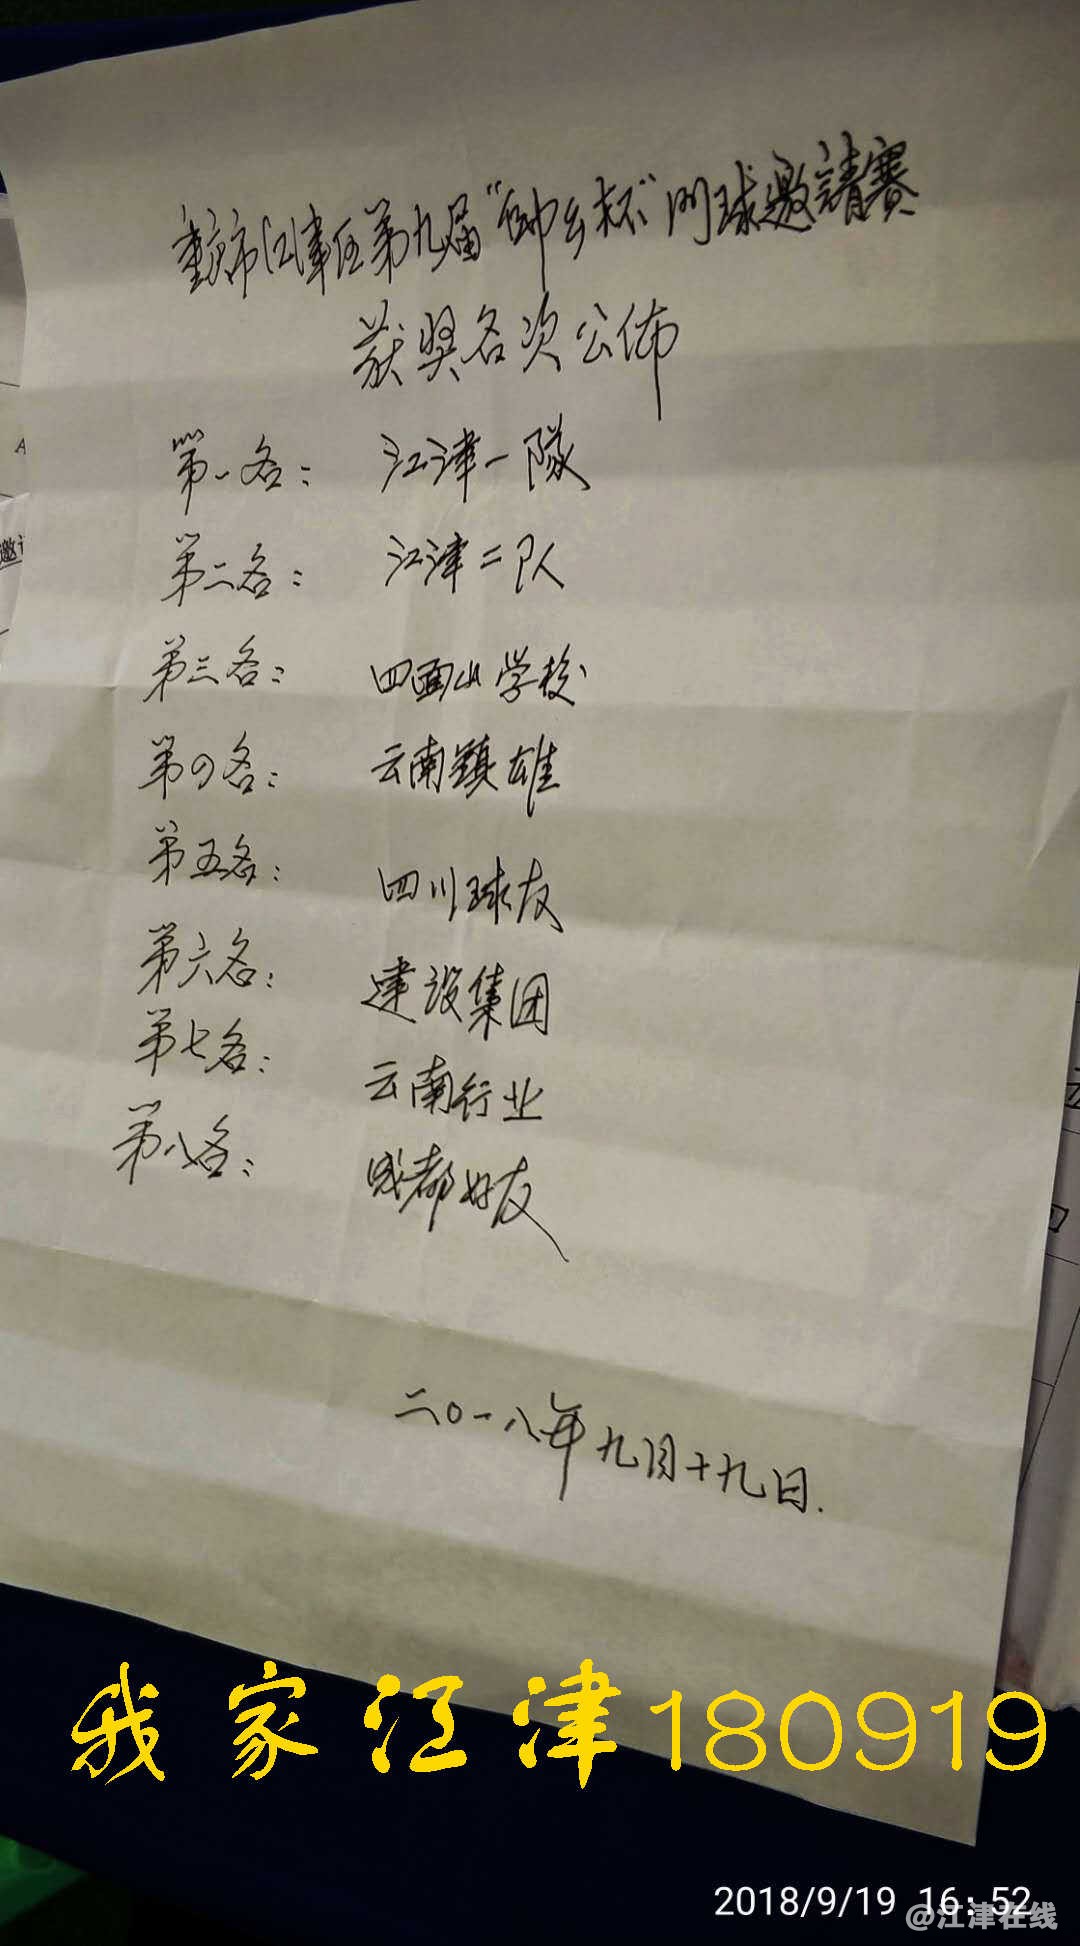 重庆市江津区第九届“帅乡杯”门球邀請賽
获奖名次公佈
第一名：江津一隊
第二名：江津二队
第三名：四面山学校
第四名：云南镇雄
第五名：四川球友
第六名：建设集团
第七名：云南行业
第八名：成都好友
二〇一八年九月十九日.
我家江津180919
2018/9/19 16:52
@江津在线